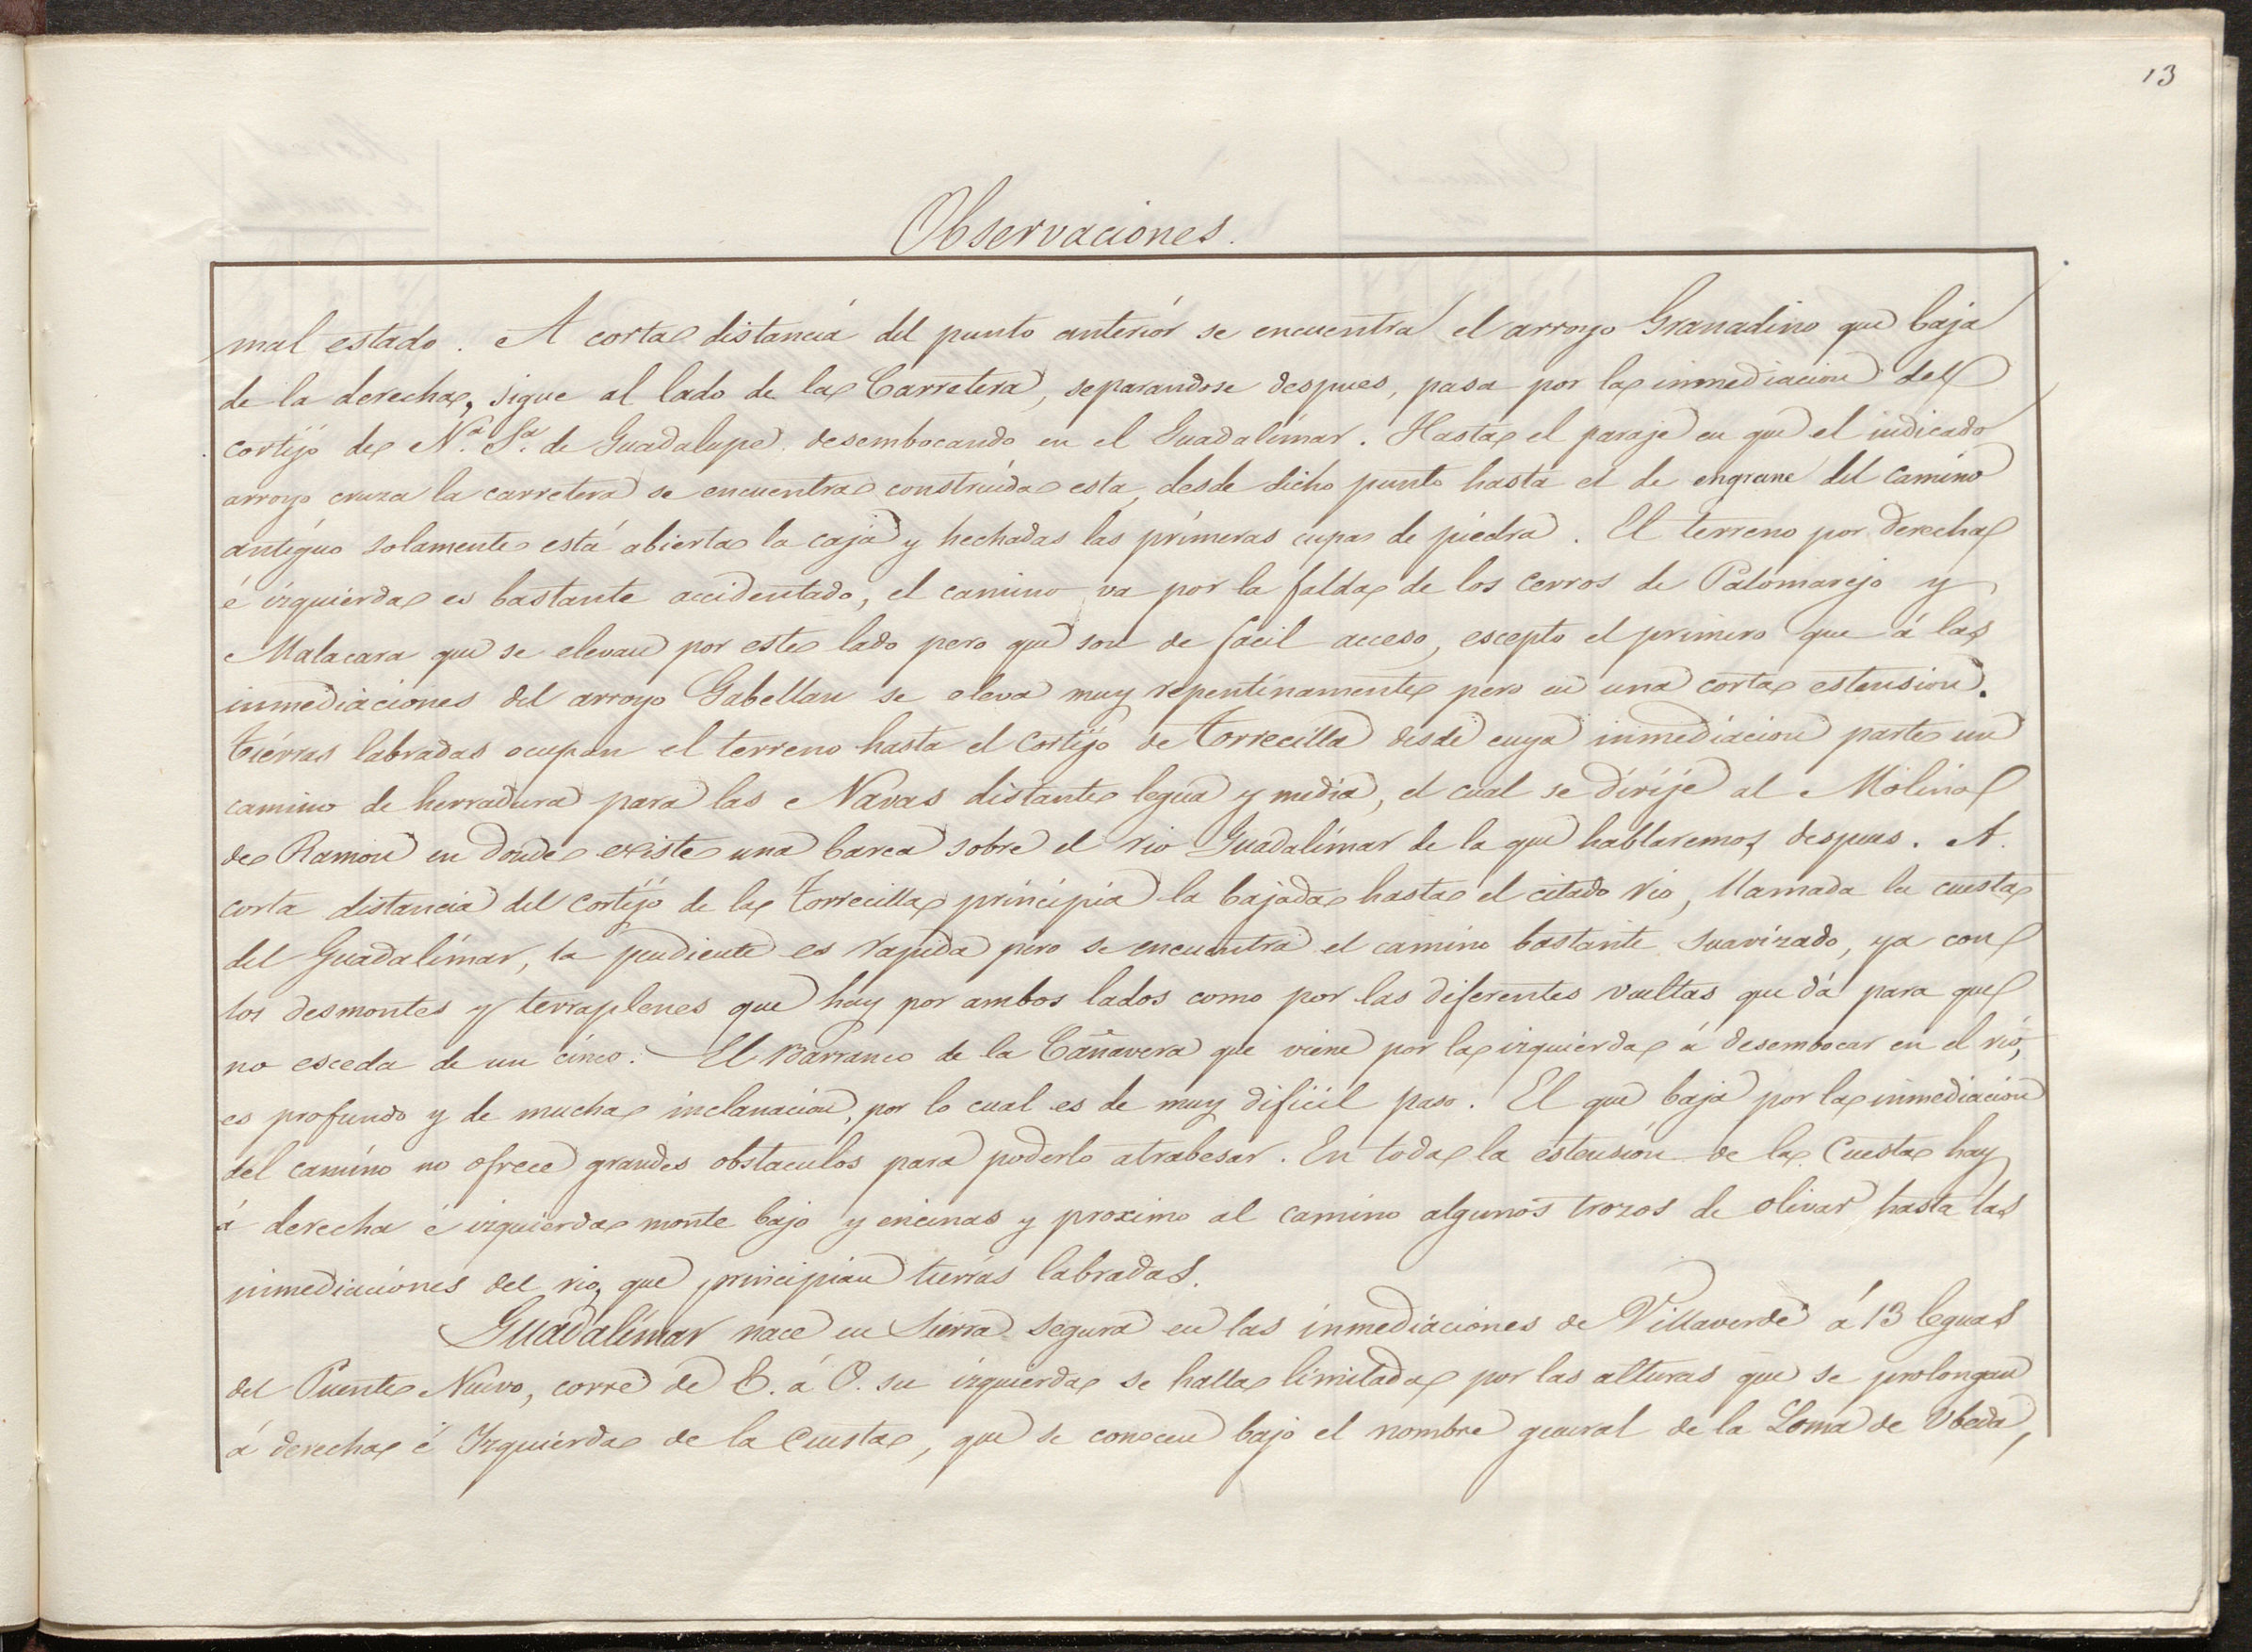 13
Observaciones.
mal estado. A corta distancia del punto anteriór se encuentra el arroyo Granadino que baja
de la derecha, sigue al lado de la Carretera, separandose despues, pasa por la inmediacion del
cortijo de N.ª S.ª de Guadalupe desembocando en el Guadalimar. Hasta el paraje en que el indicado
arroyo cruza la carretera se encuentra construida esta, desde dicho punto hasta el de engrane del camino
antiguo solamente está abierta la caja y hechadas las primeras cupas de piedra. El terreno por derecha
é izquierda es bastante accidentado, el camino va por la falda de los cerros de Palomarejo y
Malacara que se elevan por este lado pero que son de facil acceso, escepto el primero que á las
inmediaciones del arroyo Gabellan se eleva muy repentinamente pero en una corta estension.
tierras labradas ocupan el terreno hasta el cortijo de Torrecilla desde cuya inmediacion parte un
camino de herradura para las Navas distante legua y media, el cual se dirije al Molino
de Ramon en donde existe una barca sobre el rio Guadalimar de la que hablaremos despues. A
corta distancia del cortijo de la Torrecilla principia la bajada hasta el citado rio, llamada la cuesta
del Guadalimar, la pendiente es rapida pero se encuentra el camino bastante suavizado, ya con
los desmontes y terraplenes que hay por ambos lados como por las diferentes vueltas que dá para que
no esceda de un cinco. El Barranco de la Cañavera que viene por la izquierda á desembocar en el rio,
es profundo y de mucha inclanacion, por lo cual es de muy dificil paso. El que baja por la inmediacion
del camino no ofrece grandes obstaculos para poderlo atrabesar. En toda la estension de la Cuesta hay
á derecha é izquierda monte bajo y encinas y proximo al camino algunos trozos de olivar hasta las
inmediaciones del rio, que principian tierras labradas.
Guadalimar nace en Sierra Segura en las inmediaciones de Villaverde á 13 leguas
del Puente Nuevo, corre de E. á O. su izquierda se halla limitada por las alturas que se prolongan
á derecha é Izquierda de la Cuesta, que se conocen bajo el nombre general de la Loma de Ubeda,